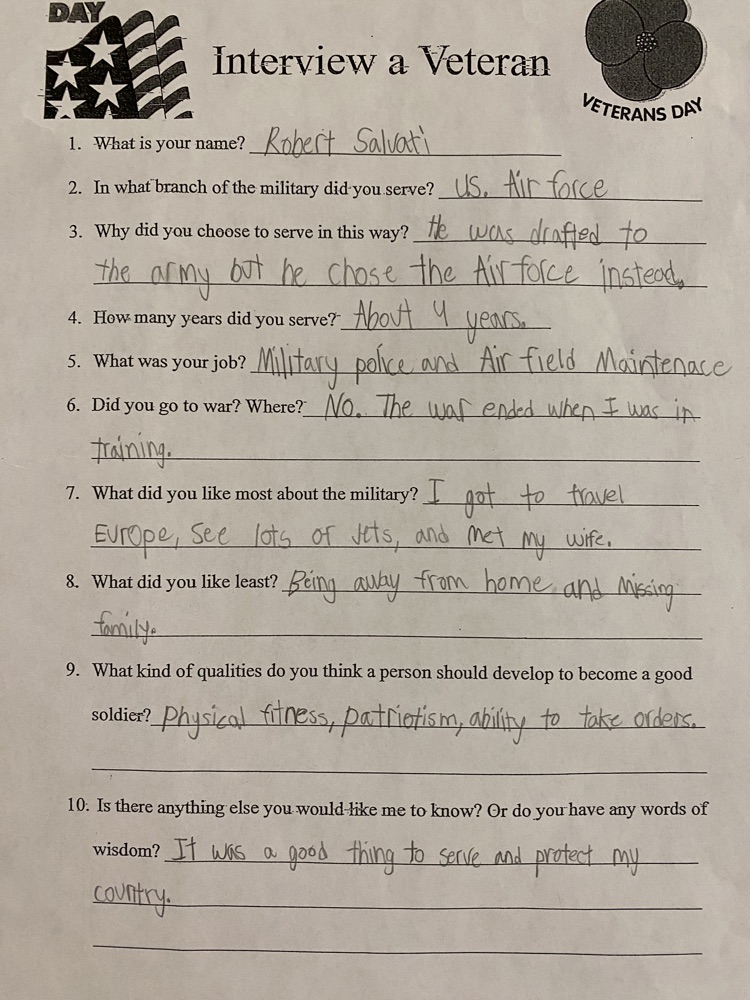 DAY
Interview a Veteran
VETERANS DAY
1. What is your name? Robert Salvati
2. In what branch of the military did you serve? US. Air force
3. Why did you choose to serve in this way? He was drafted to
the army but he chose the Air force instead.
4. How many years did you serve? About 4 years.
5. What was your job? Military police and Air field Maintenace
6. Did you go to war? Where? No. The war ended when I was in
training.
7. What did you like most about the military? I got to travel
Europe, see lots of Jets, and met my wife.
8. What did you like least? Being away from home and missing
family.
9. What kind of qualities do you think a person should develop to become a good
soldier? Physical fitness, patriotism, ability to take orders.
10. Is there anything else you would like me to know? Or do you have any words of
wisdom? It was a good thing to serve and protect my
country.